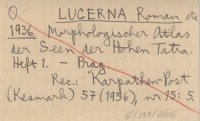 LUCERNA Roman etc
1936. Morphologischer Atlas
der Seen der Hohen Tatra.
Heft 1. - Prag
Rec.: "Karpathen-Post
(Kesmark) 57 (1936), nr 15: 5.